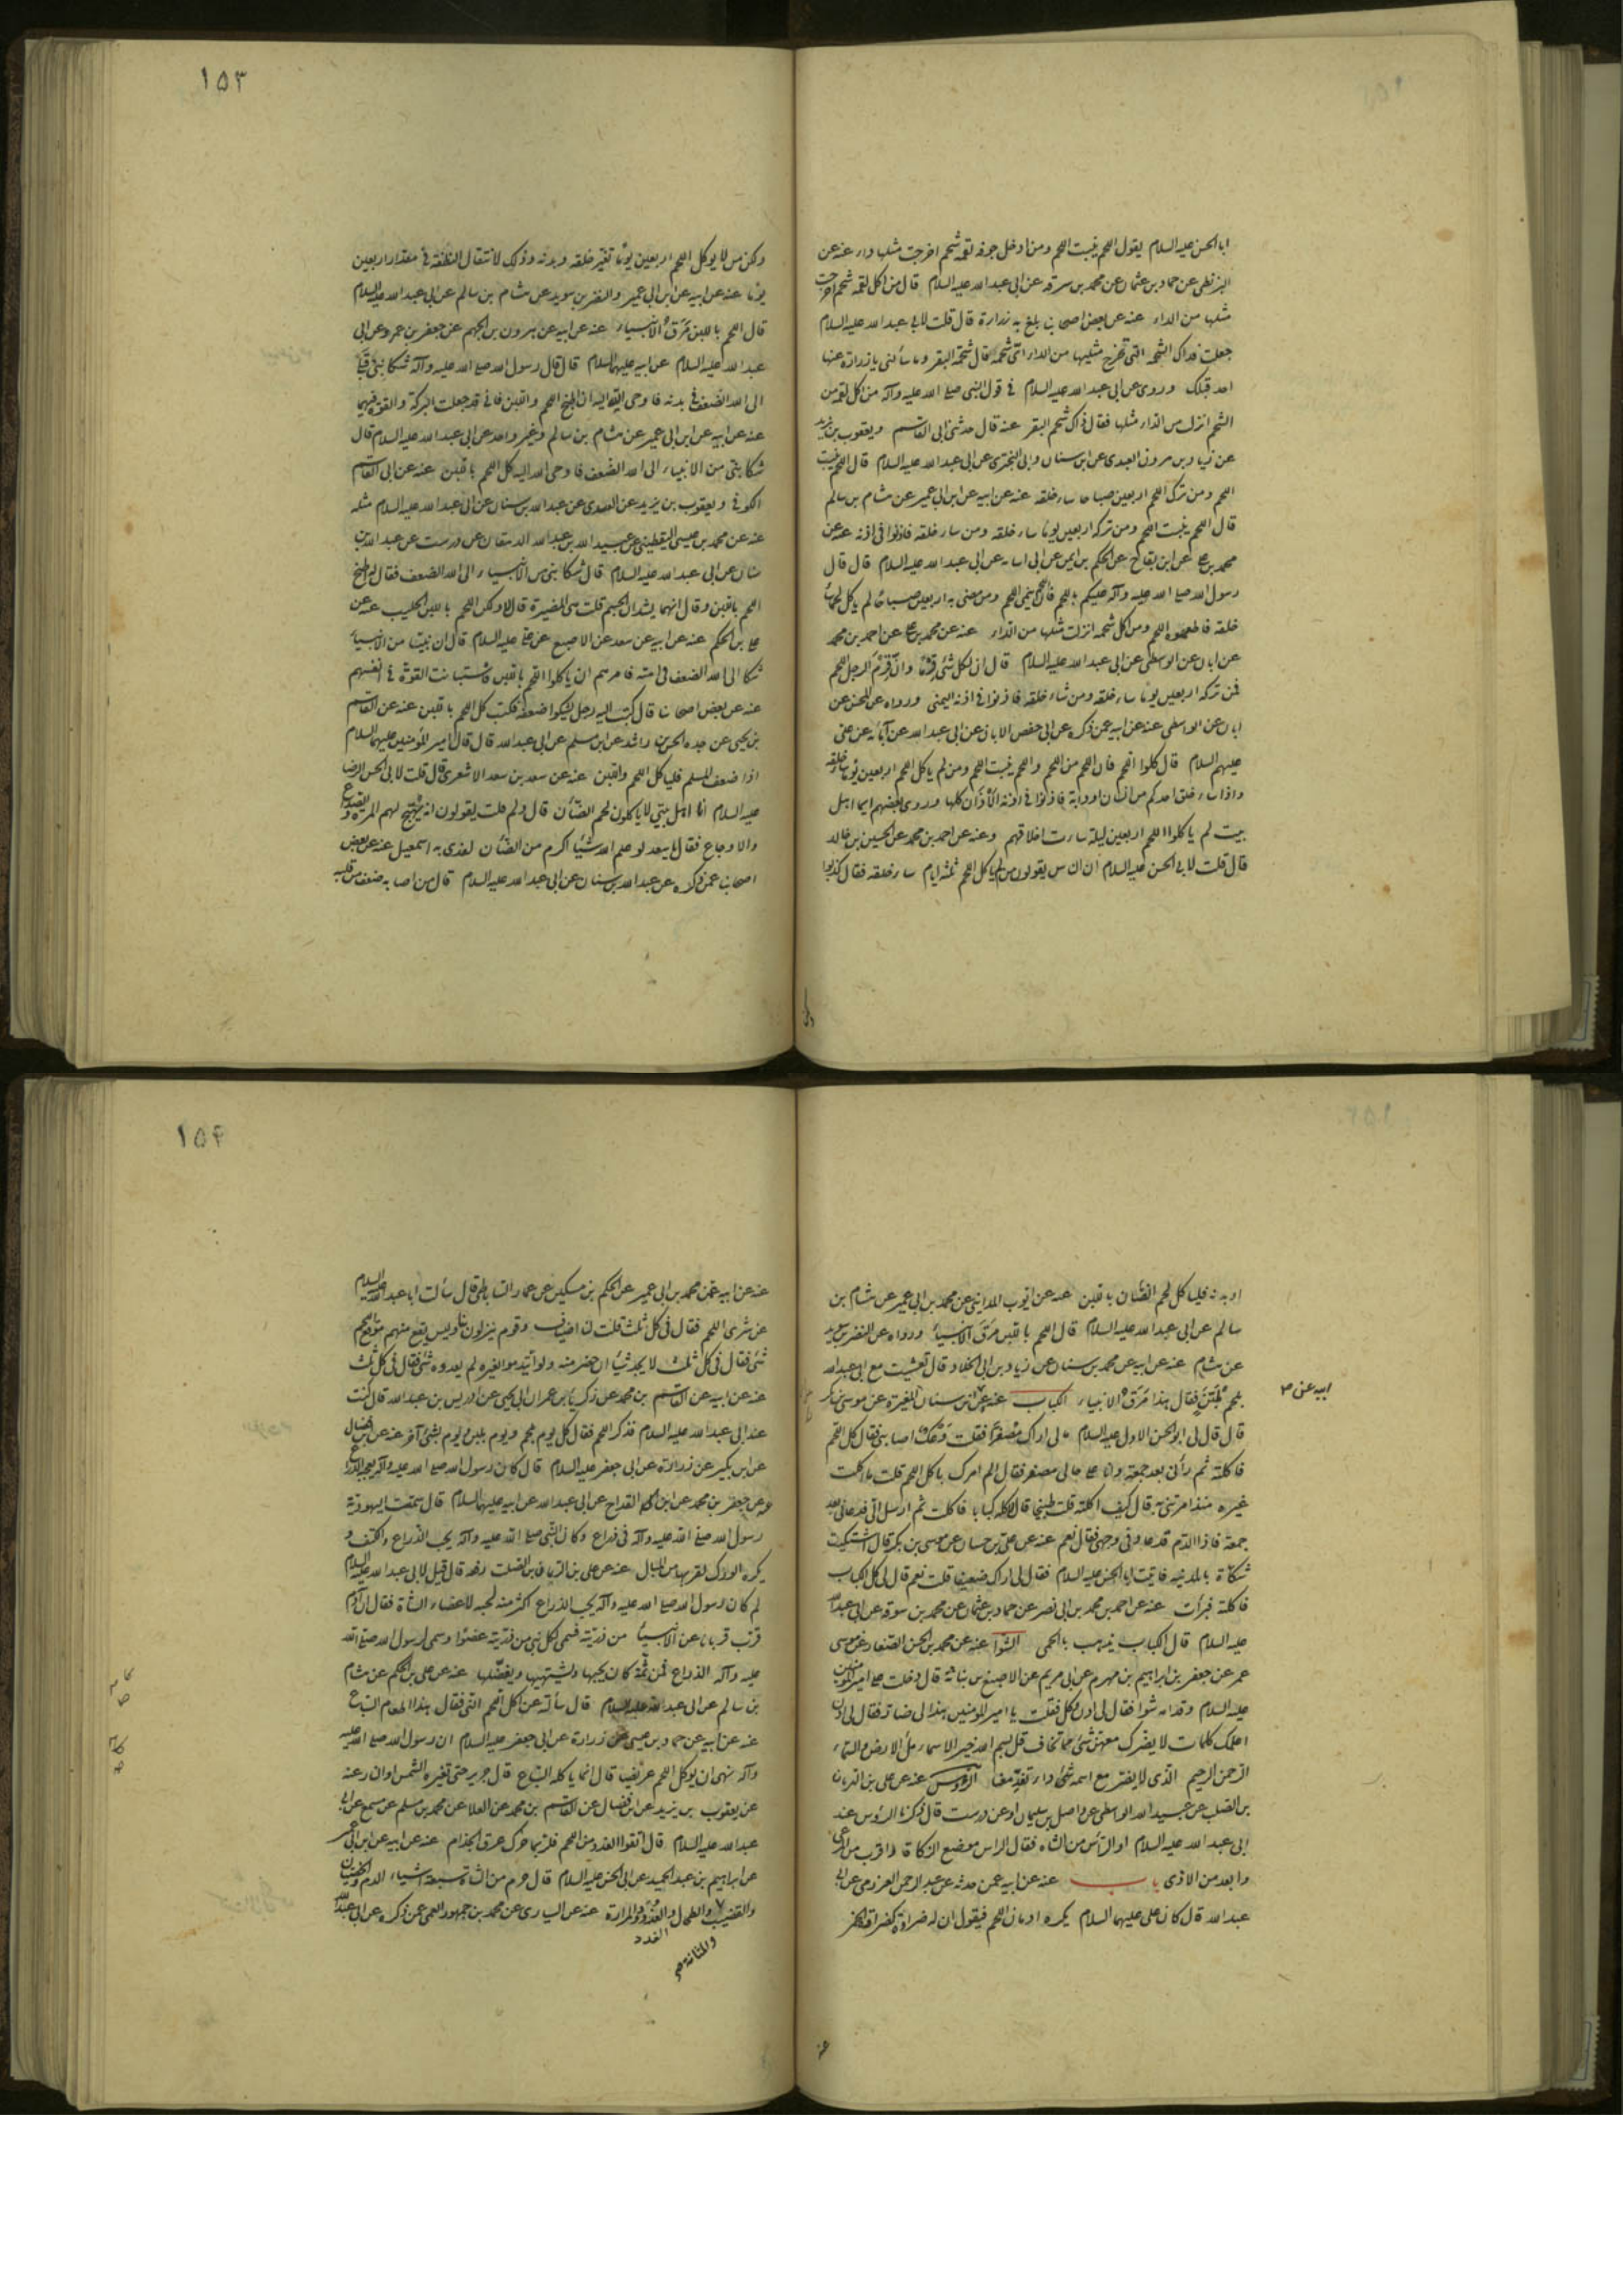 ابا الحسن عليه السلام يقول اللحم ينبت اللحم ومن ادخل جوفه لقمة شحم اخرجت مثلها داء عنه عن
البزنطى عن حماد بن عثمان عن محمد بن سوقه عن ابى عبد الله عليه السلام قال من اكل لقمة شحم اخرجت
مثلها من الداء عنه عن بعض اصحابنا بلغ به زرارة قال قلت لابى عبد الله عليه السلام
جعلت فداك الشحمه التى تخرج مثليها من الداء اى شحمه قال شحمة البقر وما سألنى يا زرارة عنها
احد قبلك وروى عن ابى عبد الله عليه السلام فى قول النبى صلى الله عليه وآله من اكل لقمة من
الشحم انزل من الداء مثلها فقال ذاك شحم البقر عنه قال حدثنى ابى القاسم ويعقوب بن يزيد
عن زياد بن مروان العبدى عن ابن سنان وابى البخترى عن ابى عبد الله عليه السلام قال اللحم ينبت
اللحم ومن ترك اللحم اربعين صباحا ساء خلقه عنه عن ابيه عن ابن ابى عمير عن هشام بن سالم
قال اللحم ينبت اللحم ومن تركه اربعين يوما ساء خلقه ومن ساء خلقه فاذنوا فى اذنه عنه عن
محمد بن على عن ابن بقاح عن الحكم بن ايمن عن ابى اسامه عن ابى عبد الله عليه السلام قال قال
رسول الله صلى الله عليه وآله عليكم باللحم فان اللحم ينمى اللحم ومن مضى به اربعين صباحا لم يأكل لحما ساء
خلقه فاطعموه اللحم ومن اكل شحمه انزلت مثلها من الداء عنه عن محمد بن على عن احمد بن محمد
عن ابان عن الواسطى عن ابى عبد الله عليه السلام قال ان لكل شئ قرما وان قرم الرجل اللحم
فمن تركه اربعين يوما ساء خلقه ومن ساء خلقه فاذنوا فى اذنه اليمنى ورواه عن المحسن عن
ابان عن الواسطى عنه عن ابيه عمن ذكره عن ابى حفص الابان عن ابى عبد الله عن آبائه عن على
عليهم السلام قال كلوا اللحم فان اللحم من اللحم واللحم ينبت اللحم ومن لم يأكل اللحم اربعين يوما ساء خلقه
واذا ساء خلق احدكم من انسان او دابة فاذنوا فى اذنه الأذان كلها وروى بعضهم ايما اهل
بيت لم يأكلوا اللحم اربعين ليلة ساءت اخلاقهم وعنه عن احمد بن محمد عن الحسين بن خالد
قال قلت لابى الحسن عليه السلام ان الناس يقولون من لم يأكل اللحم ثلثة ايام ساء خلقه فقال كذبوا
ولكن
١٥٣
ولكن من لا يوكل اللحم اربعين يوما تغير خلقه وبدنه وذلك لانتقال النطفة فى مقدار اربعين
يوما عنه عن ابيه عن ابن ابى عمير والنضر بن سويد عن هشام بن سالم عن ابى عبد الله عليه السلام
قال اللحم باللبن مرق الانبياء عنه عن ابيه عن هرون بن الجهم عن جعفر بن عمرو عن ابى
عبد الله عليه السلام عن ابيه عليهما السلام قال قال رسول الله صلى الله عليه وآله شكا نبى قبلى
الى الله الضعف فى بدنه فاوحى الله اليه ان اطبخ اللحم واللبن فانى قد جعلت البركة والقوة فيهما
عنه عن ابيه عن ابن ابى عمير عن هشام بن سالم وغير واحد عن ابى عبد الله عليه السلام قال
شكا نبى من الانبياء الى الله الضعف فاوحى الله اليه كل اللحم باللبن عنه عن ابى القاسم
الكوفى ويعقوب بن يزيد عن العبدى عن عبد الله بن سنان عن ابى عبد الله عليه السلام مثله
عنه عن محمد بن عيسى اليقطينى عن عبيد الله بن عبد الله الدهقان عن درست عن عبد الله بن
سنان عن ابى عبد الله عليه السلام قال شكا نبى من الانبياء الى الله الضعف فقال له اطبخ
اللحم باللبن وقال انهما يشدان الجسم قلت هى المضيرة قال لا ولكن اللحم باللبن الحليب عنه عن
على بن الحكم عنه عن ابيه عن سعد عن الاصبغ عن على عليه السلام قال ان نبيا من الانبياء
شكا الى الله الضعف فى امته فامرهم ان يأكلوا اللحم باللبن فاستبانت القوة فى انفسهم
عنه عن بعض اصحابنا قال كتب اليه رجل يشكو اضعفه فكتب كل اللحم باللبن عنه عن القاسم
بن يحيى عن جده الحسن بن راشد عن ابن مسلم عن ابى عبد الله قال قال امير المؤمنين عليهما السلام
اذا ضعف المسلم فليأكل اللحم واللبن عنه عن سعد بن سعد الاشعرى قال قلت لابى الحسن الرضا
عليه السلام ان اهل بيتى لا يأكلون لحم الضأن قال ولم قلت يقولون انه يهيج لهم المرة والصداع
والاوجاع فقال يا سعد لو علم الله شيئا اكرم من الضأن لفدى به اسمعيل عنه عن بعض
اصحابنا عمن ذكره عن عبد الله بن سنان عن ابى عبد الله عليه السلام قال من اصابه ضعف من قلبه
او بدنه فليأكل لحم الضأن باللبن عنه عن ايوب المداينى عن محمد بن ابى عمير عن هشام بن
سالم عن ابى عبد الله عليه السلام قال اللحم باللبن مرق الانبياء ورواه عن النضر بن سويد
عن هشام عنه عن ابيه عن محمد بن سنان عن زياد بن ابى الحلاد قال تعشيت مع ابى عبد الله
بلحم بلبن فقال هذا مرق الانبياء الكباب عنه عن ابن سنان المغيرة عن موسى بن بكر
ابيه عن م
قال قال لى ابو الحسن الاول عليه السلام ما لى اراك مصفرا فقلت وعك اصابنى فقال كل اللحم
فاكلته ثم رآنى بعد جمعة وانا على حالى مصفر فقال الم امرك باكل اللحم قلت ما اكلت
غيره منذ امرتنى به قال كيف اكلته قلت طبيخا قال لا كله كبابا فاكلت ثم ارسل الى فدعانى بعد
جمعة فاذا الدم قد عاد فى وجهى فقال نعم عنه عن على بن حسان عن موسى بن بكر قال اشتكيت
شكاة بالمدينه فاتيت ابا الحسن عليه السلام فقال لى اراك ضعيفا قلت نعم قال لى كل الكباب
فاكلته فبرأت عنه عن احمد بن محمد بن ابى نصر عن حماد بن عثمان عن محمد بن سوقه عن ابى عبد الله
عليه السلام قال الكباب يذهب بالحمى الشوا عنه عن محمد بن الحسن الصفار عن موسى
عمر عن جعفر بن ابراهيم بن مهزم عن ابى مريم عن الاصبغ بن نباتة قال دخلت على امير المؤمنين
عليه السلام وقدامه شوا فقال لى ادن فكل فقلت يا امير المؤمنين هذا لى ضار فقال لى ادن
اعلمك كلمات لا يضرك معهن شئ مما تخاف قل بسم الله خير الاسماء ملء الارض والسماء
الرحمن الرحيم الذى لا يضر مع اسمه شئ داء تغد معنا الرؤوس عنه عن على بن الريان
بن الصلت عن عبيد الله الواسطى عن واصل بن سليمان او عن درست قال ذكرنا الرؤس عند
ابى عبد الله عليه السلام او الرأس من الشاه فقال الراس موضع الزكاة واقرب من المرعى
وابعد من الاذى باب عنه عن ابيه عمن حدثه عن عبد الرحمن العزرمى عن ابى
عبد الله قال كان على عليهما السلام يكره ادمان اللحم فيقول ان له ضراوة كضراوة الخمر
عنه
١٥٤
عنه عن ابيه عن محمد بن ابى عمير عن الحكم بن مسكين عن عمار الساباطى قال سألت ابا عبد الله عليه السلام
عن شرى اللحم فقال فى كل ثلث قلت لنا اضياف وقوم ينزلون بنا وليس يقع منهم موقع اللحم
شئ فقال فى كل ثلث لا يجد شيئا ان حضر منه ولو ائتدموا بغيره لم يعدوه شئ فقال فى كل ثلث
عنه عن ابيه عن القاسم بن محمد عن زكريا بن عمران ابى يحيى عن ادريس بن عبد الله قال كنت
عند ابى عبد الله عليه السلام فذكر اللحم فقال كل يوم بلحم ويوم بلبن ويوم بشئ آخر عنه عن ابن فضال
عن ابن بكير عن زرارة عن ابى جعفر عليه السلام قال كان رسول الله صلى الله عليه وآله يعجبه الذراع
عنه عن جعفر بن محمد عن ابن القداح عن ابى عبد الله عن ابيه عليهما السلام قال سمت اليهودية
رسول الله صلى الله عليه وآله فى ذراع وكان النبى صلى الله عليه وآله يحب الذراع والكتف و
يكره الورك لقربها من المبال عنه عن على بن الريان بن الصلت رفعه قال قيل لابى عبد الله عليه السلام
لم كان رسول الله صلى الله عليه وآله يحب الذراع اكثر منه لحبه لاعضاء الشاة فقال ان آدم
قرب قربانا عن الانبياء من ذريته فسمى لكل نبى من ذريته عضوا وسمى لرسول الله صلى الله
عليه وآله الذراع فمن ثمة كان يحبها ويشتهيها ويفضلها عنه عن على بن الحكم عن هشام
بن سالم عن ابى عبد الله عليه السلام قال سألته عن اكل اللحم النى فقال هذا طعام السباع
عنه عن ابيه عن حماد بن عيسى عن زرارة عن ابى جعفر عليه السلام ان رسول الله صلى الله عليه
وآله نهى ان يوكل اللحم غريضا قال انما ياكله السباع قال حريز حتى تغيره الشمس او النار عنه
عن يعقوب بن يزيد عن ابن فضال عن القاسم بن محمد عن العلا عن محمد بن مسلم عن مسمع عن ابى
عبد الله عليه السلام قال اتقوا الغدد من اللحم فلربما حرك عرق الجذام عنه عن ابيه عن ابن ابى عمير
عن ابراهيم بن عبد الحميد عن ابى الحسن عليه السلام قال حرم من الشاة سبعة اشياء الدم والخصيتان
والقضيب والطحال والغدد والمرارة عنه عن السيارى عن محمد بن جمهور العمى عن ذكره عن ابى عبد الله
الغدد
والمثانة صح